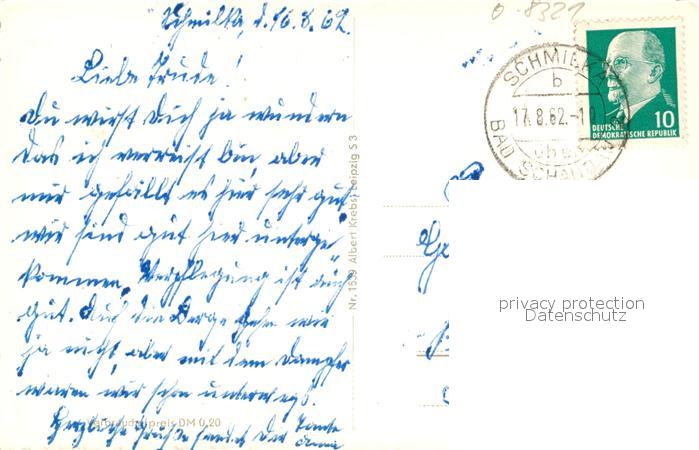 Schmilka, d. 16.8.62.
Liebe Trude!
Du wirst Dich ja wundern
das ich verreist bin, aber
mir gefällts es hier sehr gut,
wir sind gut hier unterge-
kommen, Verpflegung ist auch
gut. Auf die Berge gehn wir
ja nicht, aber mit dem Dampfer
waren wir schon unterwegs.
Herzliche Grüße sendet Dir Tante
Anna
Verbraucherpreis DM 0,20
Nr. 1539 Albert Krebs, Leipzig S 3
0-8321
SCHMILKA
b
17.8.62.-10
BAD SCHANDAU
10
DEUTSCHE
DEMOKRATISCHE REPUBLIK
privacy protection
Datenschutz